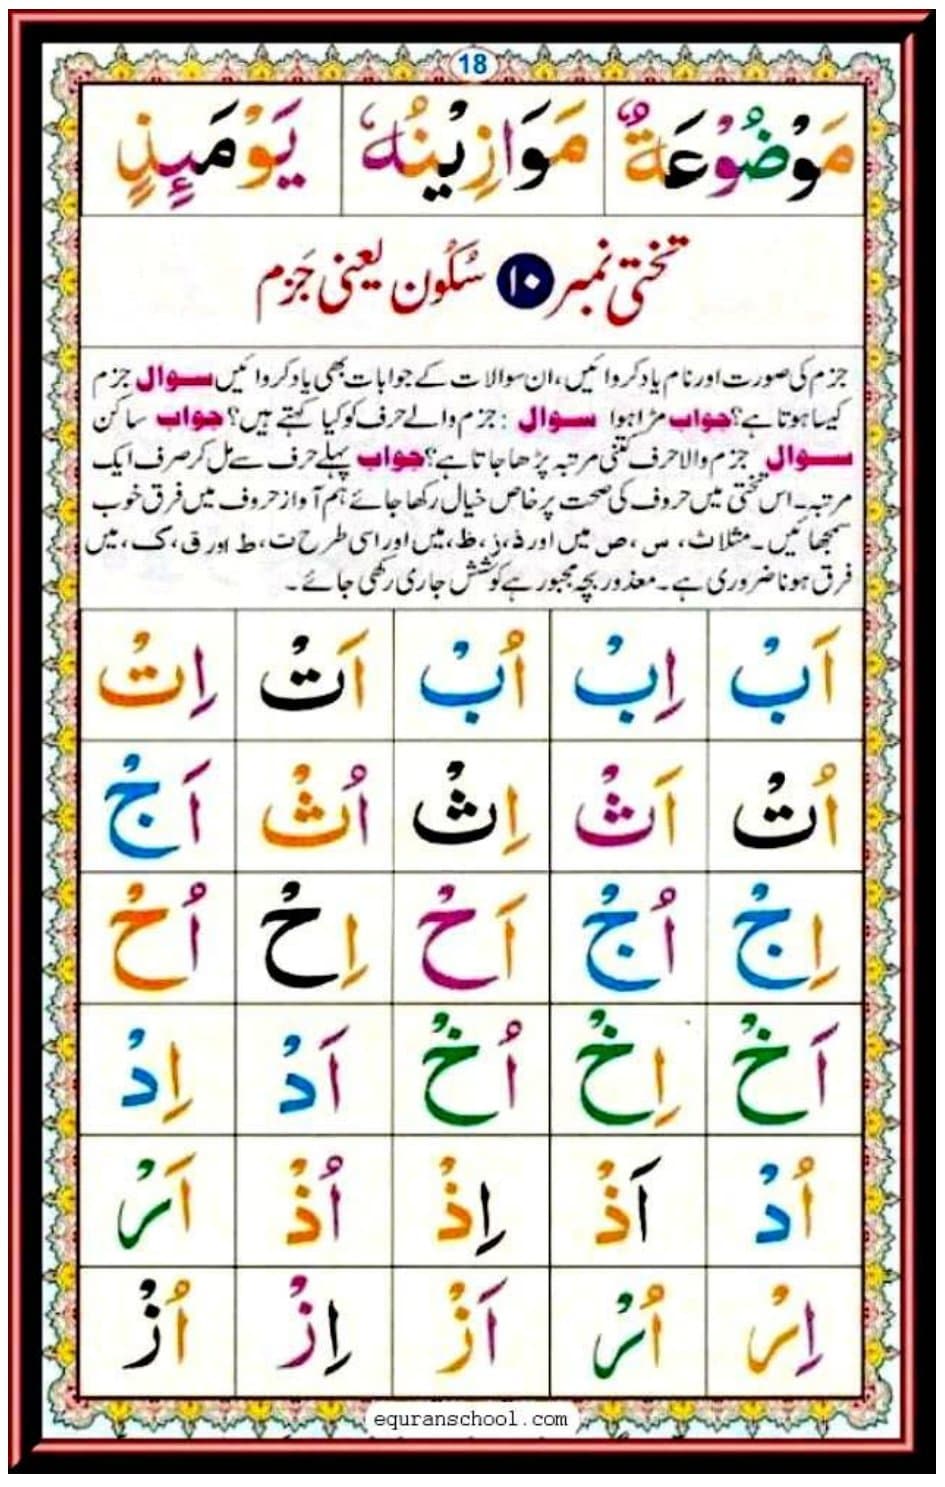 18
مَوْضُوْعَةٌ مَوَازِيْنُهٗ يَوْمَئِذٍ
تختی نمبر ۱۰ سُکُون یعنی جَزم
جزم کی صورت اور نام یاد کروائیں، ان سوالات کے جوابات بھی یاد کروائیں سوال جزم
کیسا ہوتا ہے؟ جواب مڑا ہوا سوال : جزم والے حرف کو کیا کہتے ہیں؟ جواب ساکن
سوال جزم والا حرف کتنی مرتبہ پڑھا جاتا ہے؟ جواب پہلے حرف سے مل کر صرف ایک
مرتبہ۔ اس تختی میں حروف کی صحت پر خاص خیال رکھا جائے ہم آواز حروف میں فرق خوب
سمجھائیں۔ مثلا ث، س، ص میں اور ذ، ز، ظ، میں اور اسی طرح ت، ط اور ق، ک، میں
فرق ہونا ضروری ہے۔ معذور بچہ مجبور ہے کوشش جاری رکھی جائے۔
اَبْ اِبْ اُبْ اَتْ اِتْ
اُتْ اَثْ اِثْ اُثْ اَجْ
اِجْ اُجْ اَحْ اِحْ اُحْ
اَخْ اِخْ اُخْ اَدْ اِدْ
اُدْ اَذْ اِذْ اُذْ اَرْ
اِرْ اُرْ اَزْ اِزْ اُزْ
equranschool.com